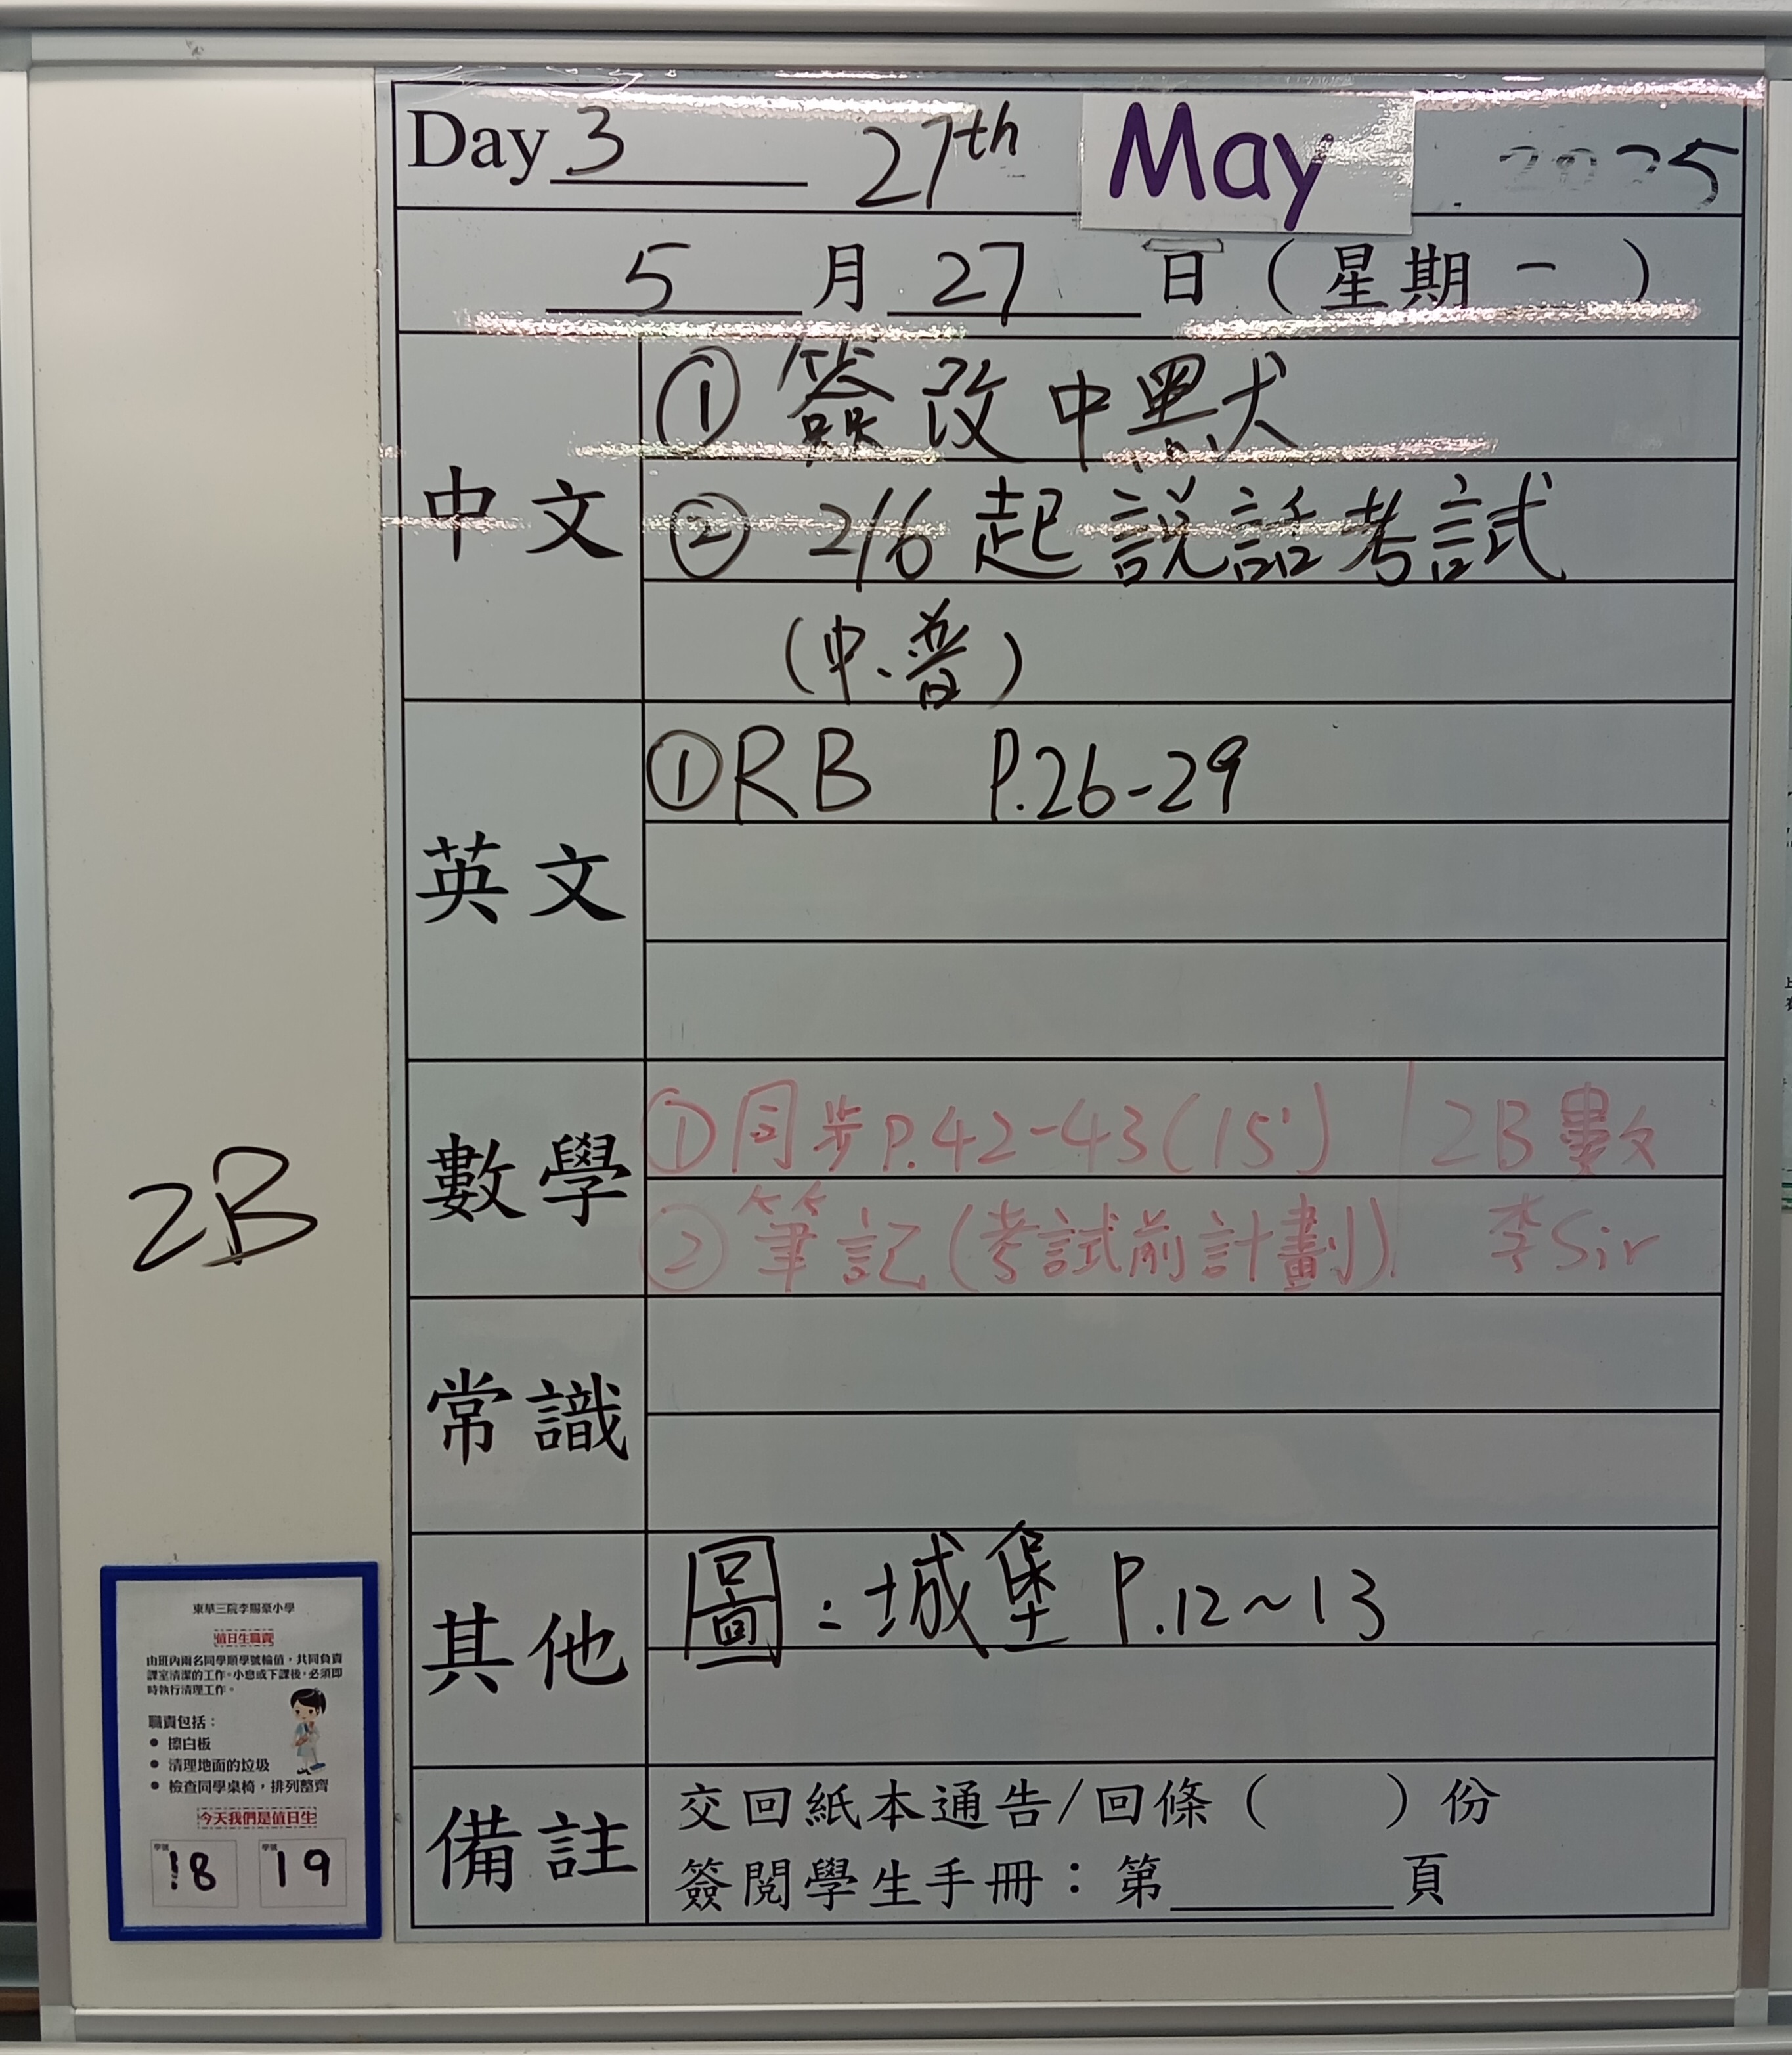 Day 3 27th May 2025
5月27日（星期一）
中文
① 簽改中默
② 2/6 起説話考試
（中、普）
英文
① RB P.26-29
數學
① 同步P.42-43(15') 2B 數
② 筆記(考試前計劃). 李Sir
常識
其他
圖：城堡 P.12~13
備註
交回紙本通告/回條（ ）份
簽閱學生手冊：第____頁
2B
東華三院李賜豪小學
值日生職責
由班內兩名同學順學號輪值，共同負責
課室清潔的工作。小息或下課後，必須即
時執行清理工作。
職責包括：
• 擦白板
• 清理地面的垃圾
• 檢查同學桌椅，排列整齊
今天我們是值日生
學號 18 學號 19